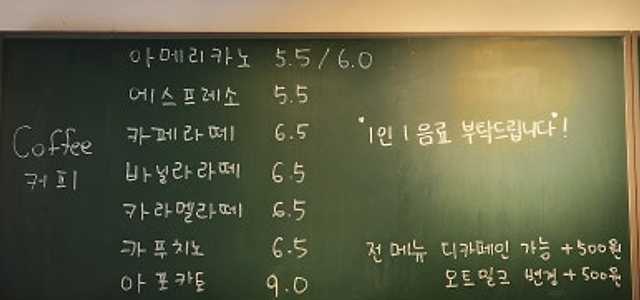 아메리카노 5.5 / 6.0
에스프레소 5.5
Coffee
커피
카페라떼 6.5
바닐라라떼 6.5
카라멜라떼 6.5
카푸치노 6.5
아포카토 9.0
"1인 1음료 부탁드립니다"!
전메뉴 디카페인 가능 +500원
오트밀크 변경 +500원